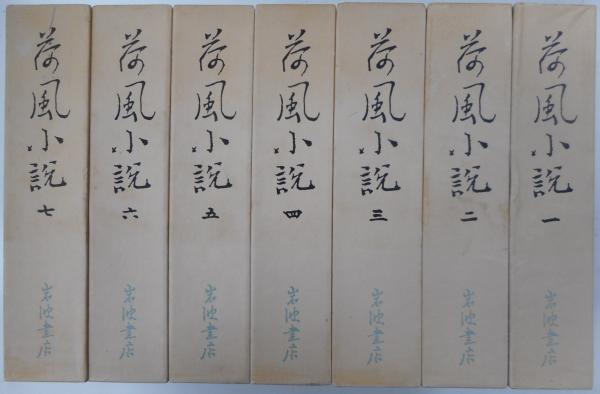 荷風小説 一 岩波書店
荷風小説 二 岩波書店
荷風小説 三 岩波書店
荷風小説 四 岩波書店
荷風小説 五 岩波書店
荷風小説 六 岩波書店
荷風小説 七 岩波書店